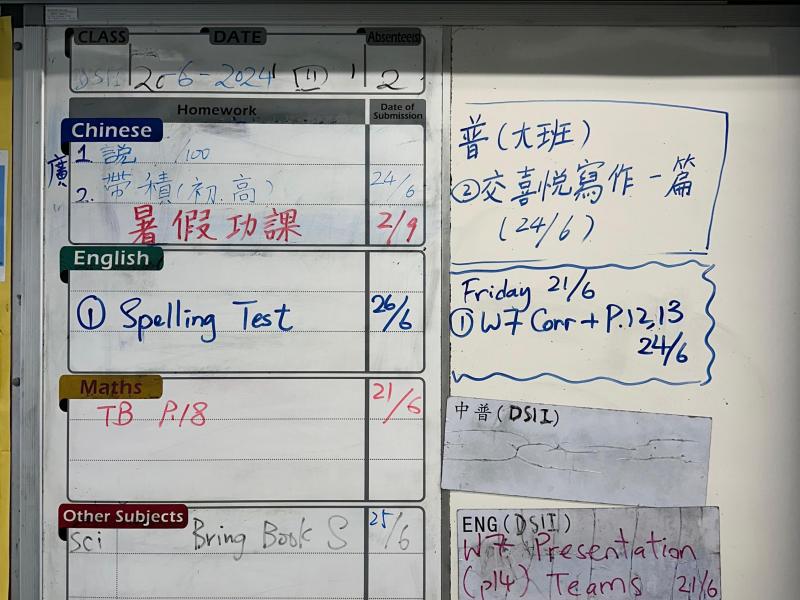 CLASS DATE Absentees
DSII 20-6-2024 (四) 2
Homework Date of Submission
Chinese
廣 1. 說 /100
2. 帶積(初.高) 24/6
暑假功課 2/9
English
① Spelling Test 26/6
Maths
TB P.18 21/6
Other Subjects
Sci Bring Book S 25/6
普(大班)
②交喜悅寫作一篇
(24/6)
Friday 21/6
① W7 Corr + P.12,13
24/6
中普(DSII)
ENG(DSII)
W7 Presentation
(p14) Teams 21/6